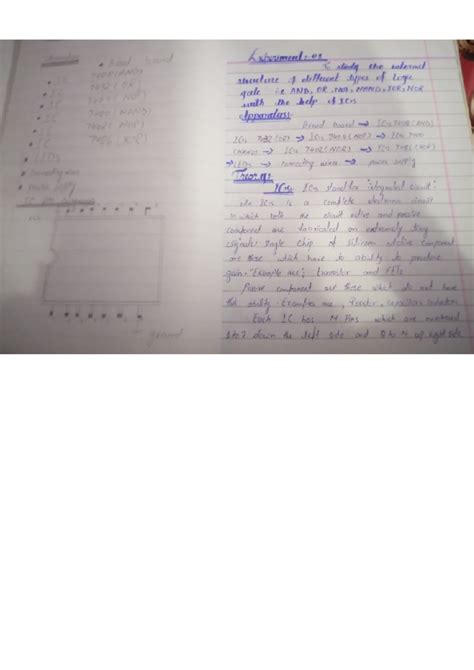 Bread board
IC 7408(AND)
IC 7432 (OR)
IC 7404 (NOT)
IC 7400 (NAND)
IC 7402 (NOR)
IC 7486 (
LEDs
Connecting wires
Power supply
ground
Experiment: 01
To study the internal
structure of different types of Logic
gate i.e AND, OR, NOT, NAND, XOR, NOR
with the help of ICs
Apparatus:
Bread board → ICs 7408 (AND)
ICs 7432 (OR) → ICs 7404 (NOT) → ICs 7400
(NAND) → ICs 7402 (NOR) → ICs 7486 (
→ LEDs → Connecting wires → power supply
Theory:
ICs: ICs stand for "integrated circuit".
An ICs is a complete electronic circuit
in which both the active and passive
component are fabricated on extremely tiny
single chip of silicon Active component
are those which have to ability to produce
gain. "Example are", transistor and FETs.
Passive component are those which do not have
this ability. Examples are, Resistor, capacitors inductors
Each IC has 14 Pins which are numbered
1 to 7 down the left side and 8 to 14 up right side